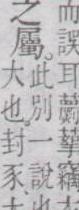 而誤耳竊
之屬。
此別一說也
大也封豕大